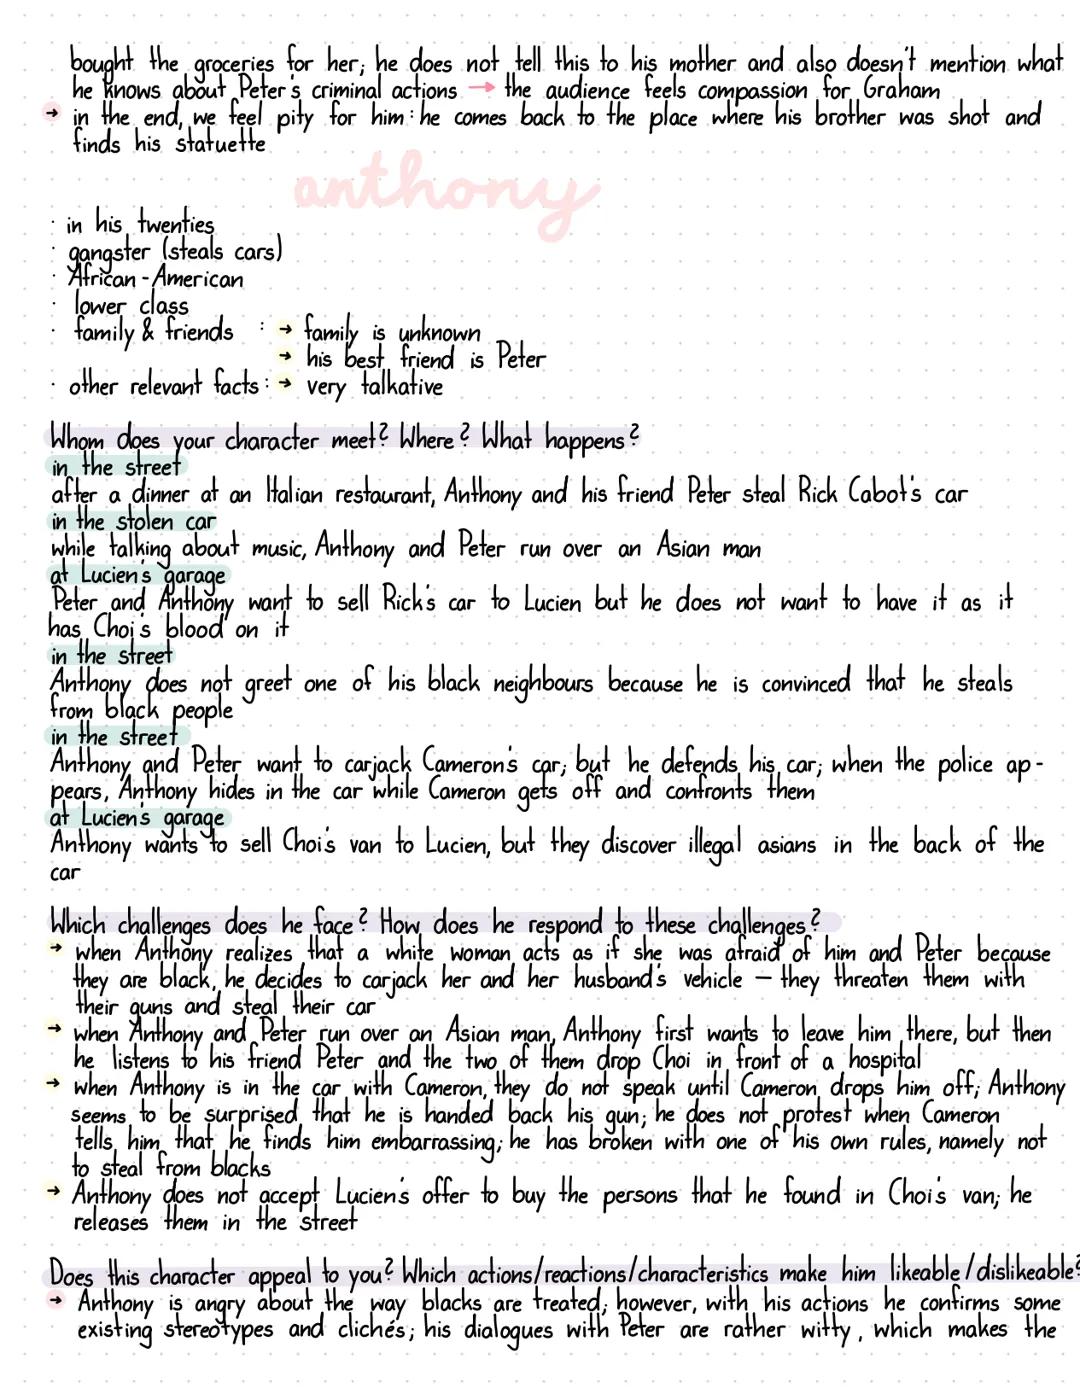 bought the groceries for her; he does not tell this to his mother and also doesn't mention what
he knows about Peter's criminal actions → the audience feels compassion for Graham
→ in the end, we feel pity for him: he comes back to the place where his brother was shot and
finds his statuette
anthony
· in his twenties
· gangster (steals cars)
· African-American
· lower class
· family & friends : → family is unknown
→ his best friend is Peter
· other relevant facts: → very talkative
Whom does your character meet? Where? What happens?
in the street
after a dinner at an Italian restaurant, Anthony and his friend Peter steal Rick Cabot's car
in the stolen car
while talking about music, Anthony and Peter run over an Asian man
at Lucien's garage
Peter and Anthony want to sell Rick's car to Lucien but he does not want to have it as it
has Choi's blood on it
in the street
Anthony does not greet one of his black neighbours because he is convinced that he steals
from black people
in the street
Anthony and Peter want to carjack Cameron's car; but he defends his car; when the police ap-
pears, Anthony hides in the car while Cameron gets off and confronts them
at Lucien's garage
Anthony wants to sell Choi's van to Lucien, but they discover illegal asians in the back of the
car
Which challenges does he face? How does he respond to these challenges?
→ when Anthony realizes that a white woman acts as if she was afraid of him and Peter because
they are black, he decides to carjack her and her husband's vehicle – they threaten them with
their guns and steal their car
→ when Anthony and Peter run over an Asian man, Anthony first wants to leave him there, but then
he listens to his friend Peter and the two of them drop Choi in front of a hospital
→ when Anthony is in the car with Cameron, they do not speak until Cameron drops him off; Anthony
seems to be surprised that he is handed back his gun; he does not protest when Cameron
tells him that he finds him embarrassing; he has broken with one of his own rules, namely not
to steal from blacks
→ Anthony does not accept Lucien's offer to buy the persons that he found in Choi's van; he
releases them in the street
Does this character appeal to you? Which actions/reactions/characteristics make him likeable/dislikeable?
→ Anthony is angry about the way blacks are treated; however, with his actions he confirms some
existing stereotypes and clichés; his dialogues with Peter are rather witty, which makes the